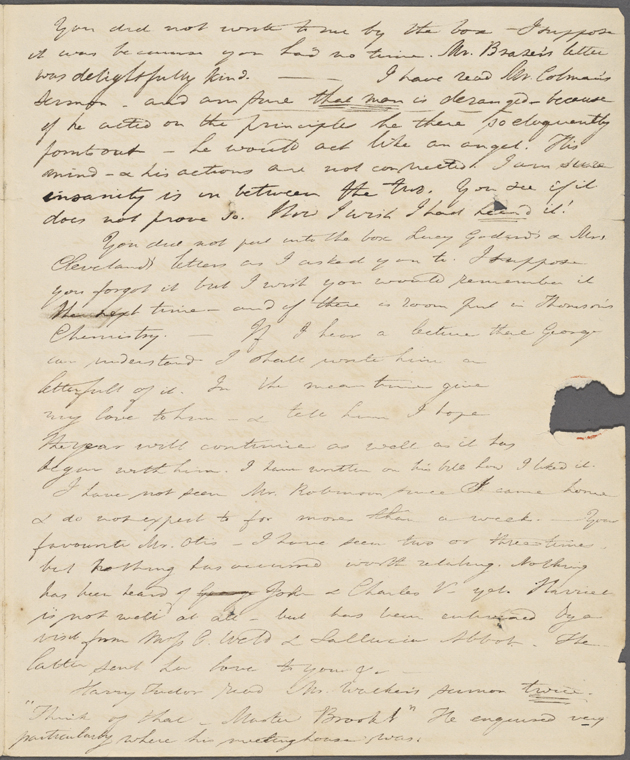 You did not write to me by the box - I suppose
it was because you had no time. Mr. Brazer's letter
was delightfully kind. — — I have read Mr. Colman's
sermon - and am sure that man is deranged - because
if he acted on the principles he there so eloquently
points out - he would act like an angel. His
mind - & his actions are not connected I am sure
insanity is in between the two. You see if it
does not prove so. How I wish I had heard it!
You did not put into the box Lucy & Mrs
Cleveland's letters as I asked you to. I suppose
you forgot it but I wish you would remember it
the next time - and if there is room put in Thomson's
Chemistry. — If I hear a lecture that George
can understand I shall write him a
letter full of it. In the mean time give
my love to him - & tell him I hope
the year will continue as well as it has
begun with him. I have written on his bill how I liked it.
I have not seen Mr. Robinson since I came home
& do not expect to for more than a week. — Your
favourite Mr. Otis - I have seen two or three times
but nothing has occurred worth relating. Nothing
has been heard of John & Charles V- yet. Harriet
is not well at all - but has been enlivened by a
visit from Miss E. Weld & Abbot. The
latter sent her love to you &c —
Harry Tudor read Mr. Walker's sermon twice.
"Think of that - Master Brooks" He enquired very
particularly where his meetinghouse was.